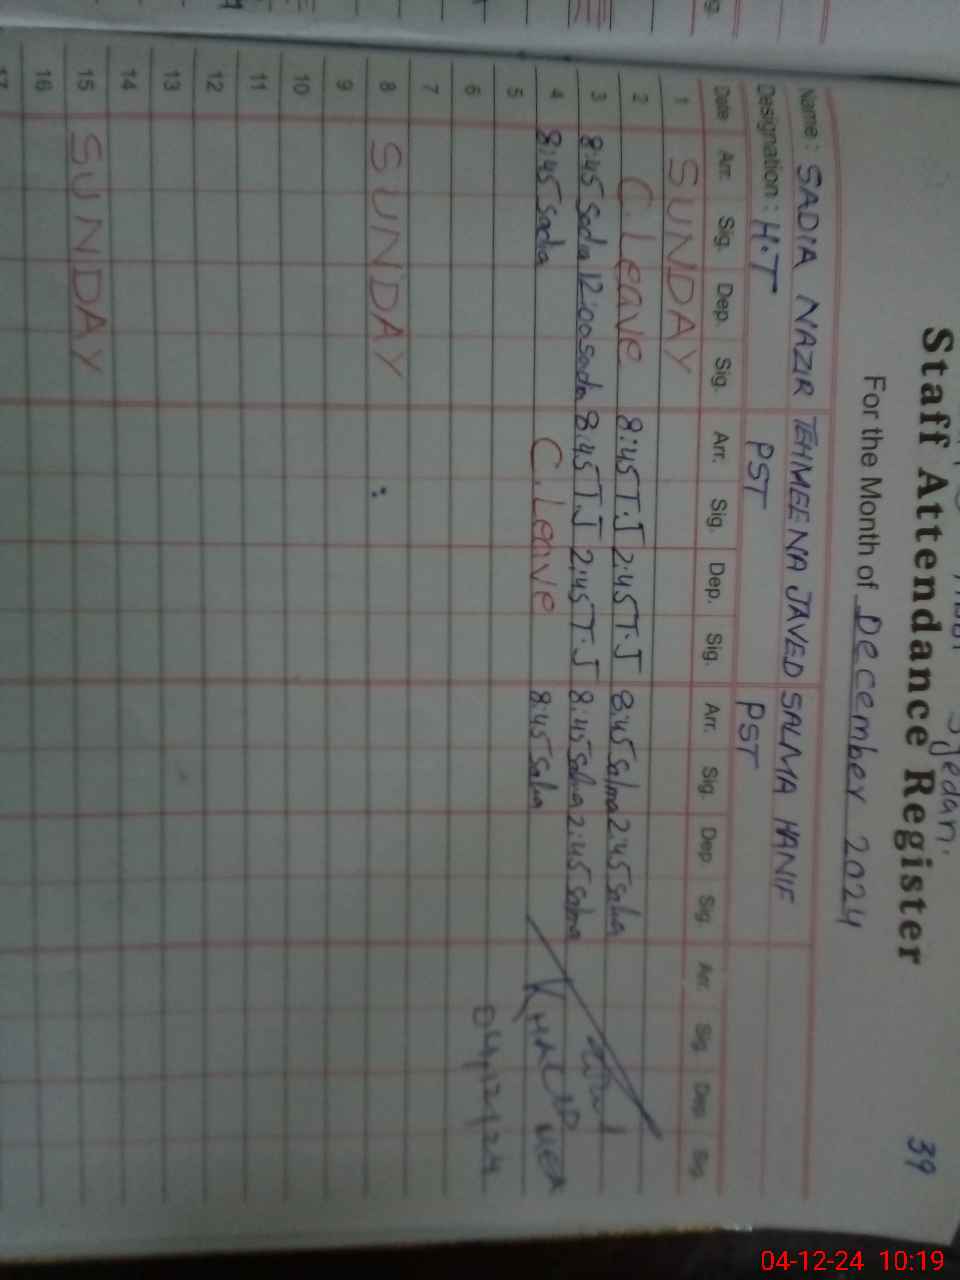 39
Staff Attendance Register
For the Month of December 2024
Name : SADIA NAZIR TEHMEENA JAVED SALMA HANIF
Designation : H.T PST PST
Date Arr. Sig. Dep. Sig. Arr. Sig. Dep. Sig. Arr. Sig. Dep. Sig. Arr. Sig. Dep. Sig.
1 SUNDAY
2 C.Leave 8:45 T.J 2:45 T.J 8:45 Salma 2:45 Salma
3 8:45 Sadia 12:00 Sadia 8:45 T.J 2:45 T.J 8:45 Salma 2:45 Salma
4 8:45 Sadia C.Leave 8:45 Salma
5 04,12,24
6
7
8 SUNDAY
9
10
11
12
13
14
15 SUNDAY
16
17
04-12-24 10:19